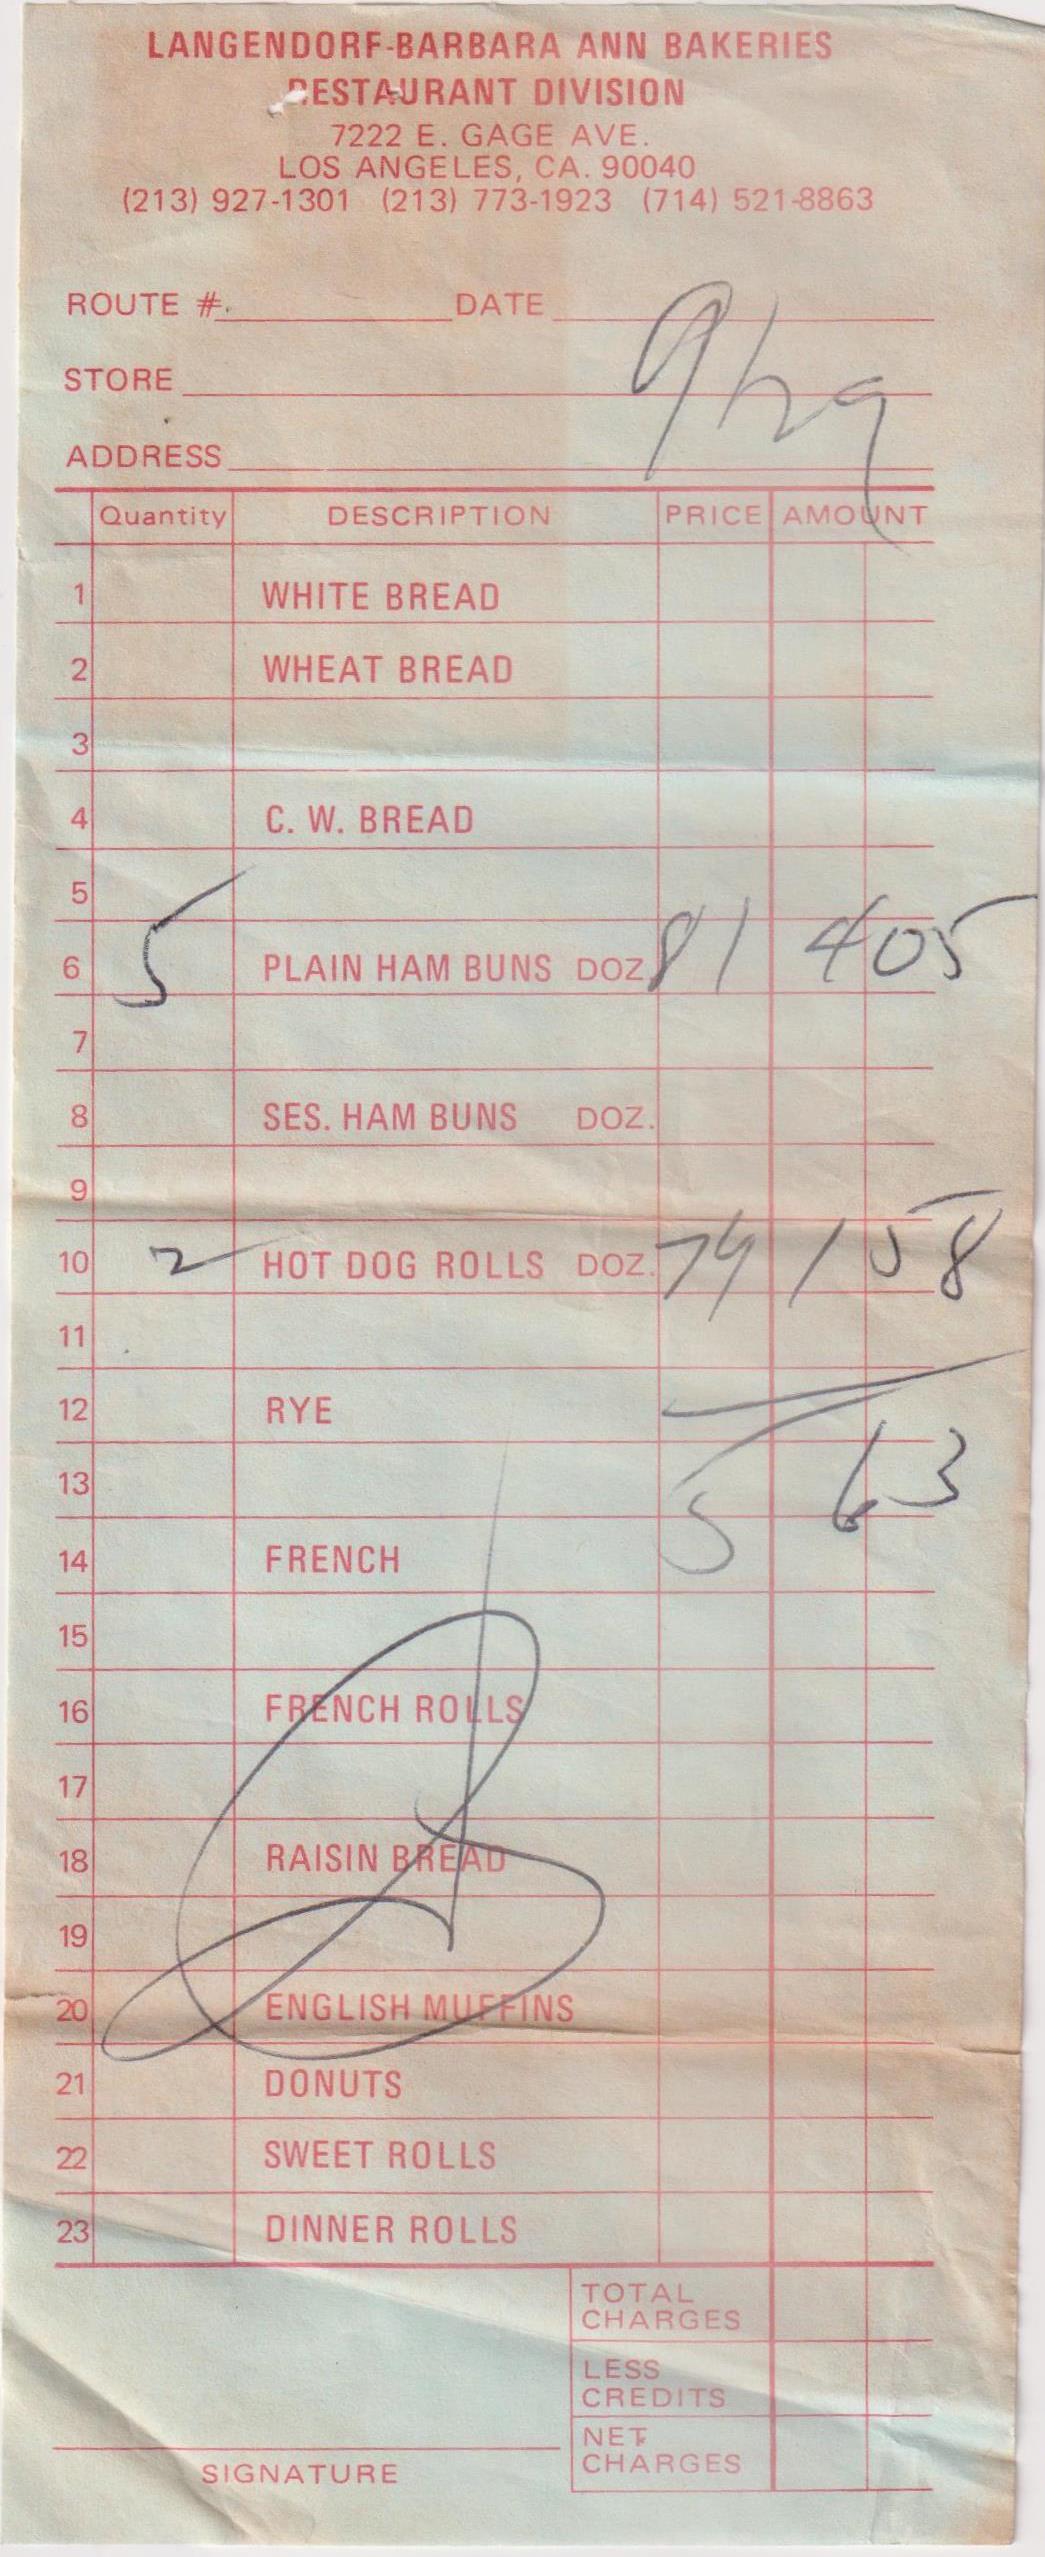 LANGENDORF-BARBARA ANN BAKERIES
RESTAURANT DIVISION
7222 E. GAGE AVE.
LOS ANGELES, CA. 90040
(213) 927-1301 (213) 773-1923 (714) 521-8863
ROUTE # DATE
STORE
ADDRESS
Quantity DESCRIPTION PRICE AMOUNT
1 WHITE BREAD
2 WHEAT BREAD
3
4 C. W. BREAD
5
6 5 PLAIN HAM BUNS DOZ. 81 4 05
7
8 SES. HAM BUNS DOZ.
9
10 2 HOT DOG ROLLS DOZ. 79 1 58
11
12 RYE
5 63
13
14 FRENCH
15
16 FRENCH ROLLS
17
18 RAISIN BREAD
19
20 ENGLISH MUFFINS
21 DONUTS
22 SWEET ROLLS
23 DINNER ROLLS
TOTAL CHARGES
LESS CREDITS
NET CHARGES
SIGNATURE